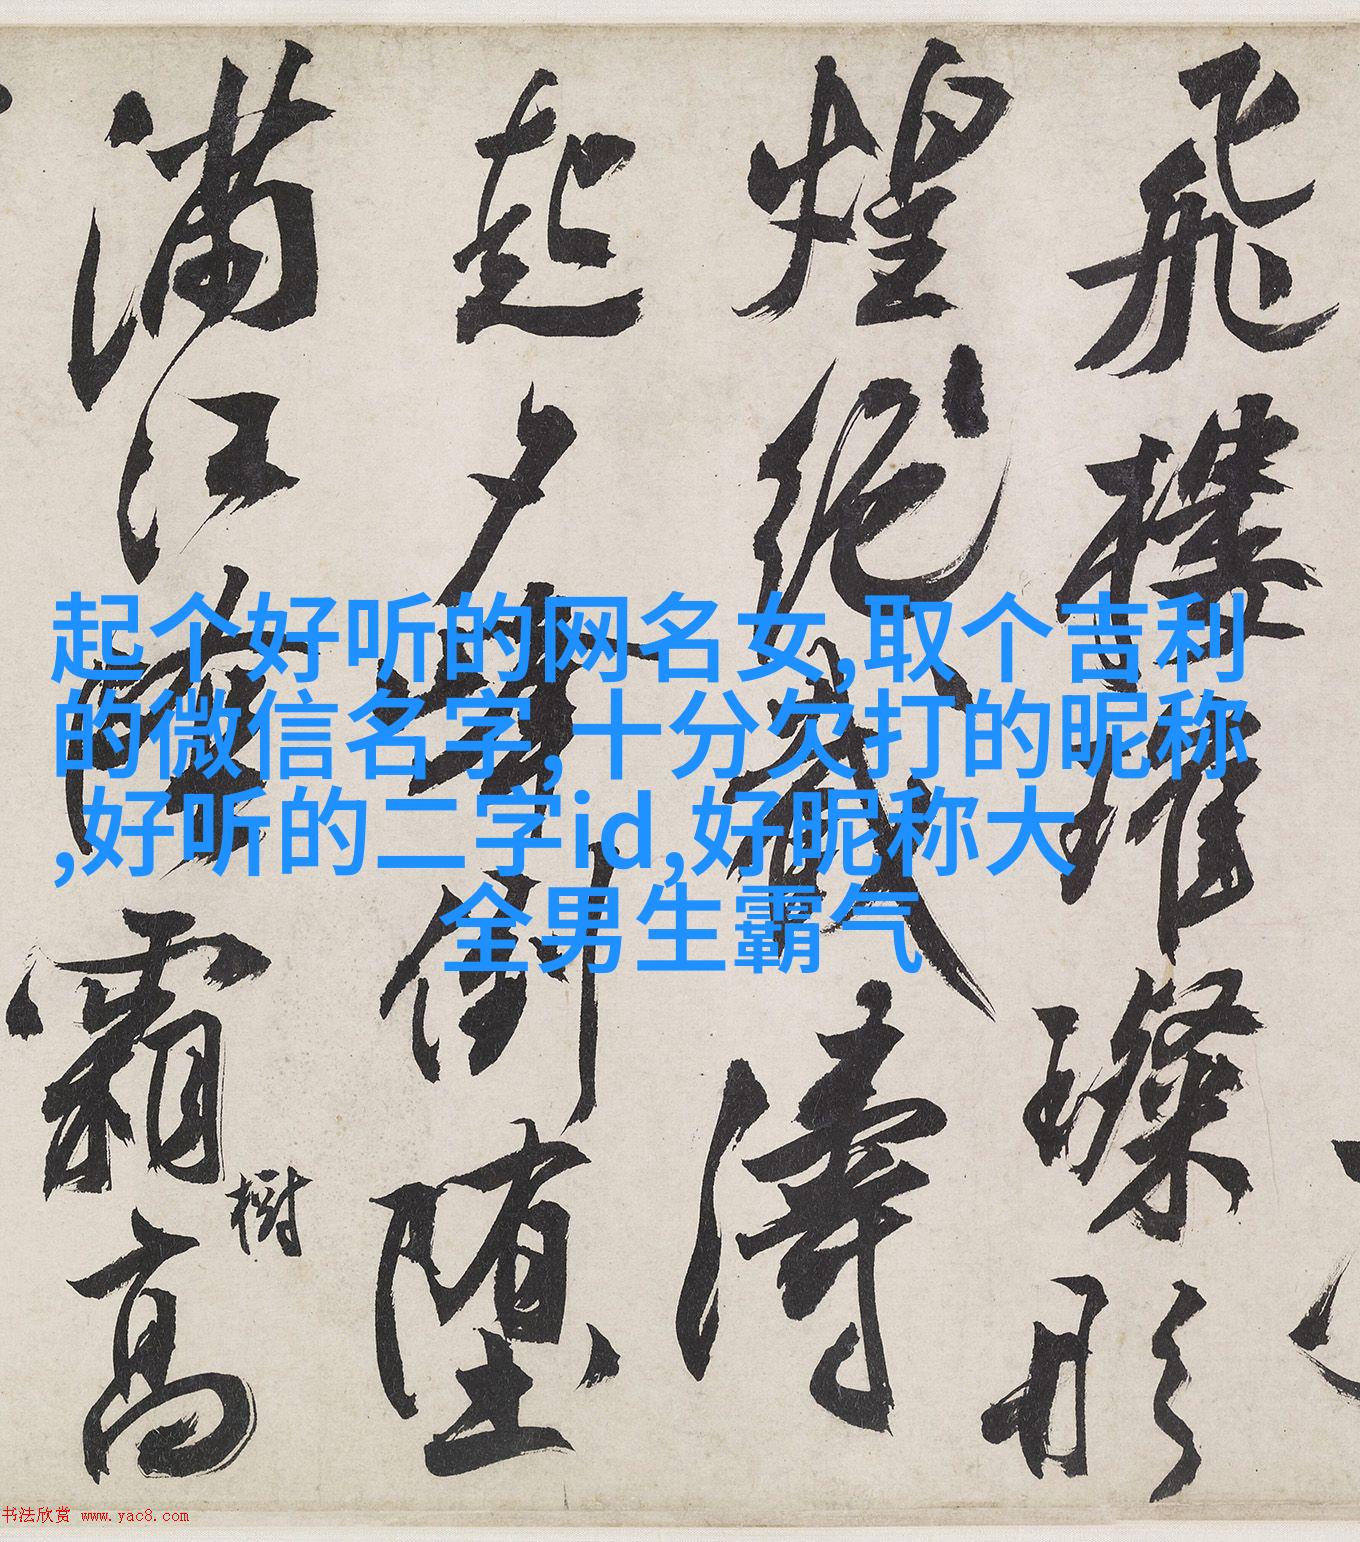 起个好听的网名女,取个吉利
的微信名字,十分欠打的昵称
,好听的二字id,好昵称大
全男生霸气
飛樓璨形
煌絕濤
起夕倒墮
滿江霜樹高
书法欣赏 www.yac8.com